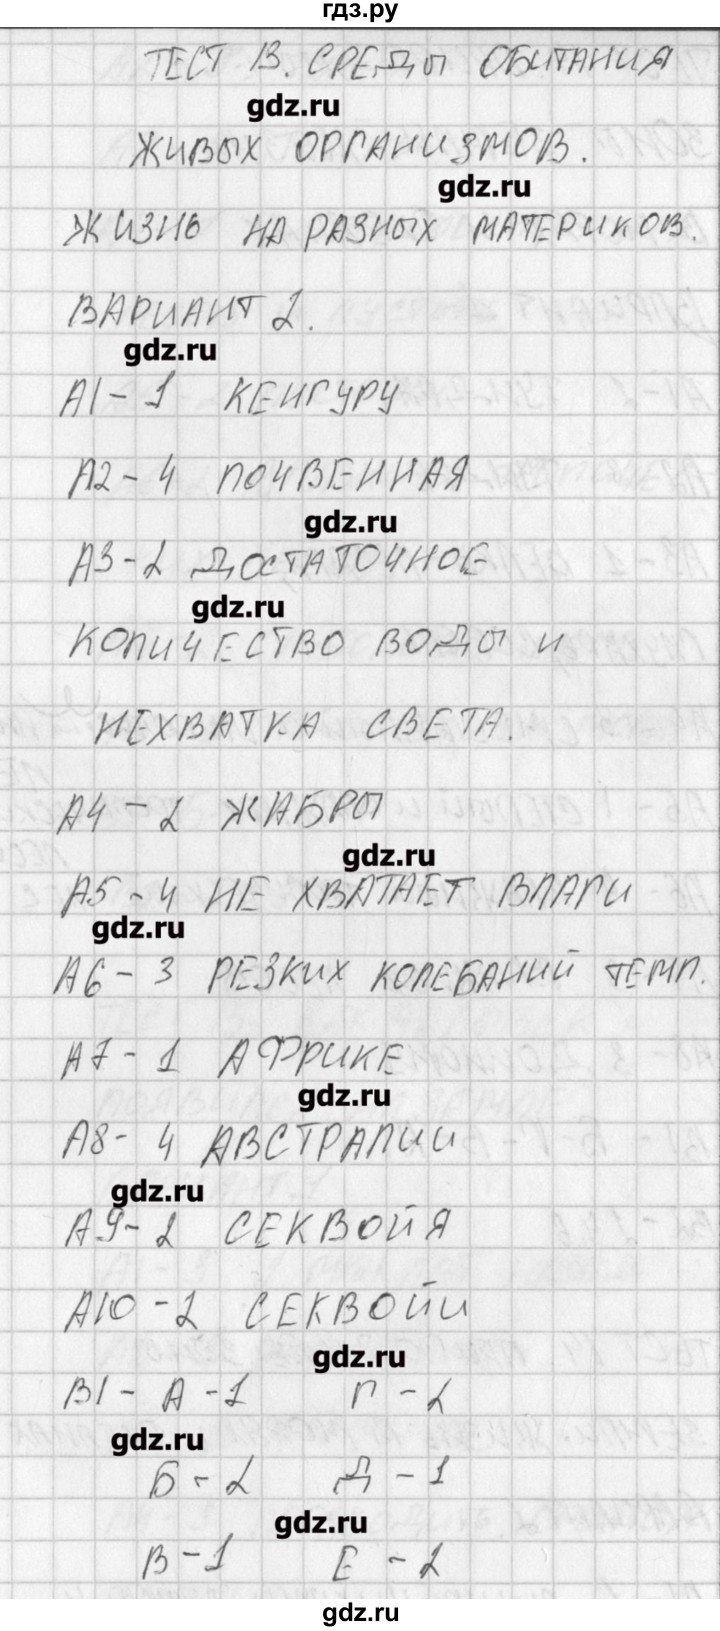 гдз.ру
ТЕСТ 13. СРЕДЫ ОБИТАНИЯ
gdz.ru
ЖИВЫХ ОРГАНИЗМОВ.
gdz.ru
ЖИЗНЬ НА РАЗНЫХ МАТЕРИКОВ.
ВАРИАНТ 2.
gdz.ru
А1 - 1 КЕНГУРУ
А2 - 4 ПОЧВЕННАЯ
gdz.ru
А3 - 2 ДОСТАТОЧНОЕ
gdz.ru
КОЛИЧЕСТВО ВОДЫ И
НЕХВАТКА СВЕТА.
А4 - 2 ЖАБРЫ
gdz.ru
А5 - 4 НЕ ХВАТАЕТ ВЛАГИ
gdz.ru
А6 - 3 РЕЗКИХ КОЛЕБАНИЙ ТЕМП.
А7 - 1 АФРИКЕ
gdz.ru
А8 - 4 АВСТРАЛИИ
gdz.ru
А9 - 2 СЕКВОЙЯ
А10 - 2 СЕКВОЙИ
gdz.ru
В1 - А - 1 Г - 2
gdz.ru
Б - 2 Д - 1
gdz.ru
В - 1 Е - 2
gdz.ru